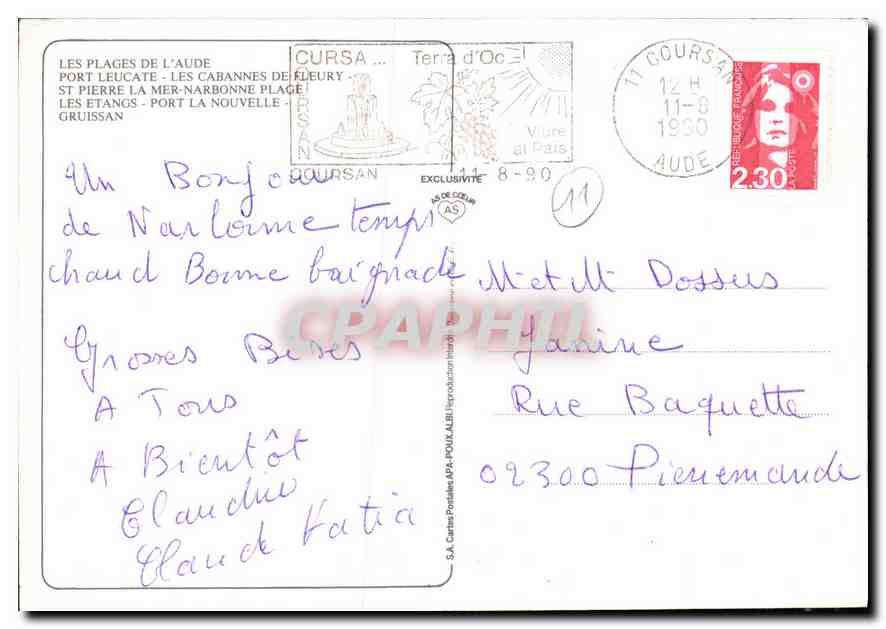 LES PLAGES DE L'AUDE
PORT LEUCATE - LES CABANNES DE FLEURY
ST PIERRE LA MER-NARBONNE PLAGE
LES ETANGS - PORT LA NOUVELLE -
GRUISSAN
CURSA... Terra d'Oc
CURSAN
Viure
al Païs
COURSAN
11-8-90
11 COURSAN
12 H
11-8
1990
AUDE
REPUBLIQUE FRANÇAISE
LA POSTE
2.30
EXCLUSIVITÉ
AS DE CŒUR
AS
11
Un Bonjour
de Narbonne temps
chaud Bonne baignade
Grosses Bises
A Tous
A Bientôt
Claudie
Claude Katia
S.A. Cartes Postales APA-POUX, ALBI Reproduction Interdite
M et M Dossus
Janine
Rue Baquette
02300 Pierremande
CPAPHIL